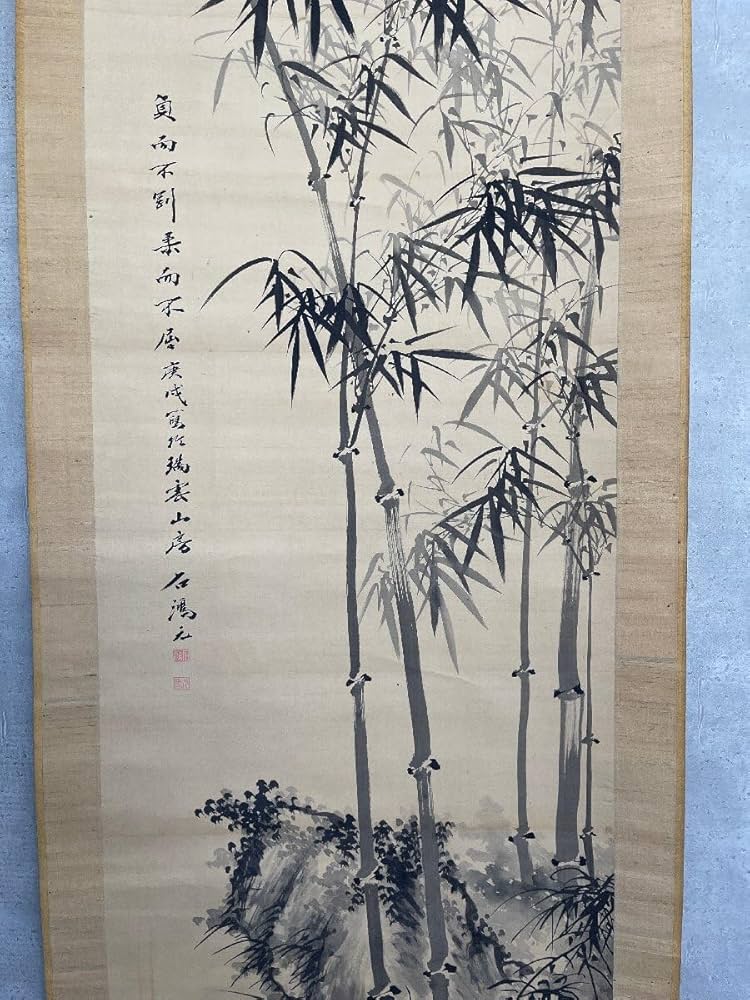 貞而不剛柔而不屈庚戌寫於瑞雲山房石鴻元